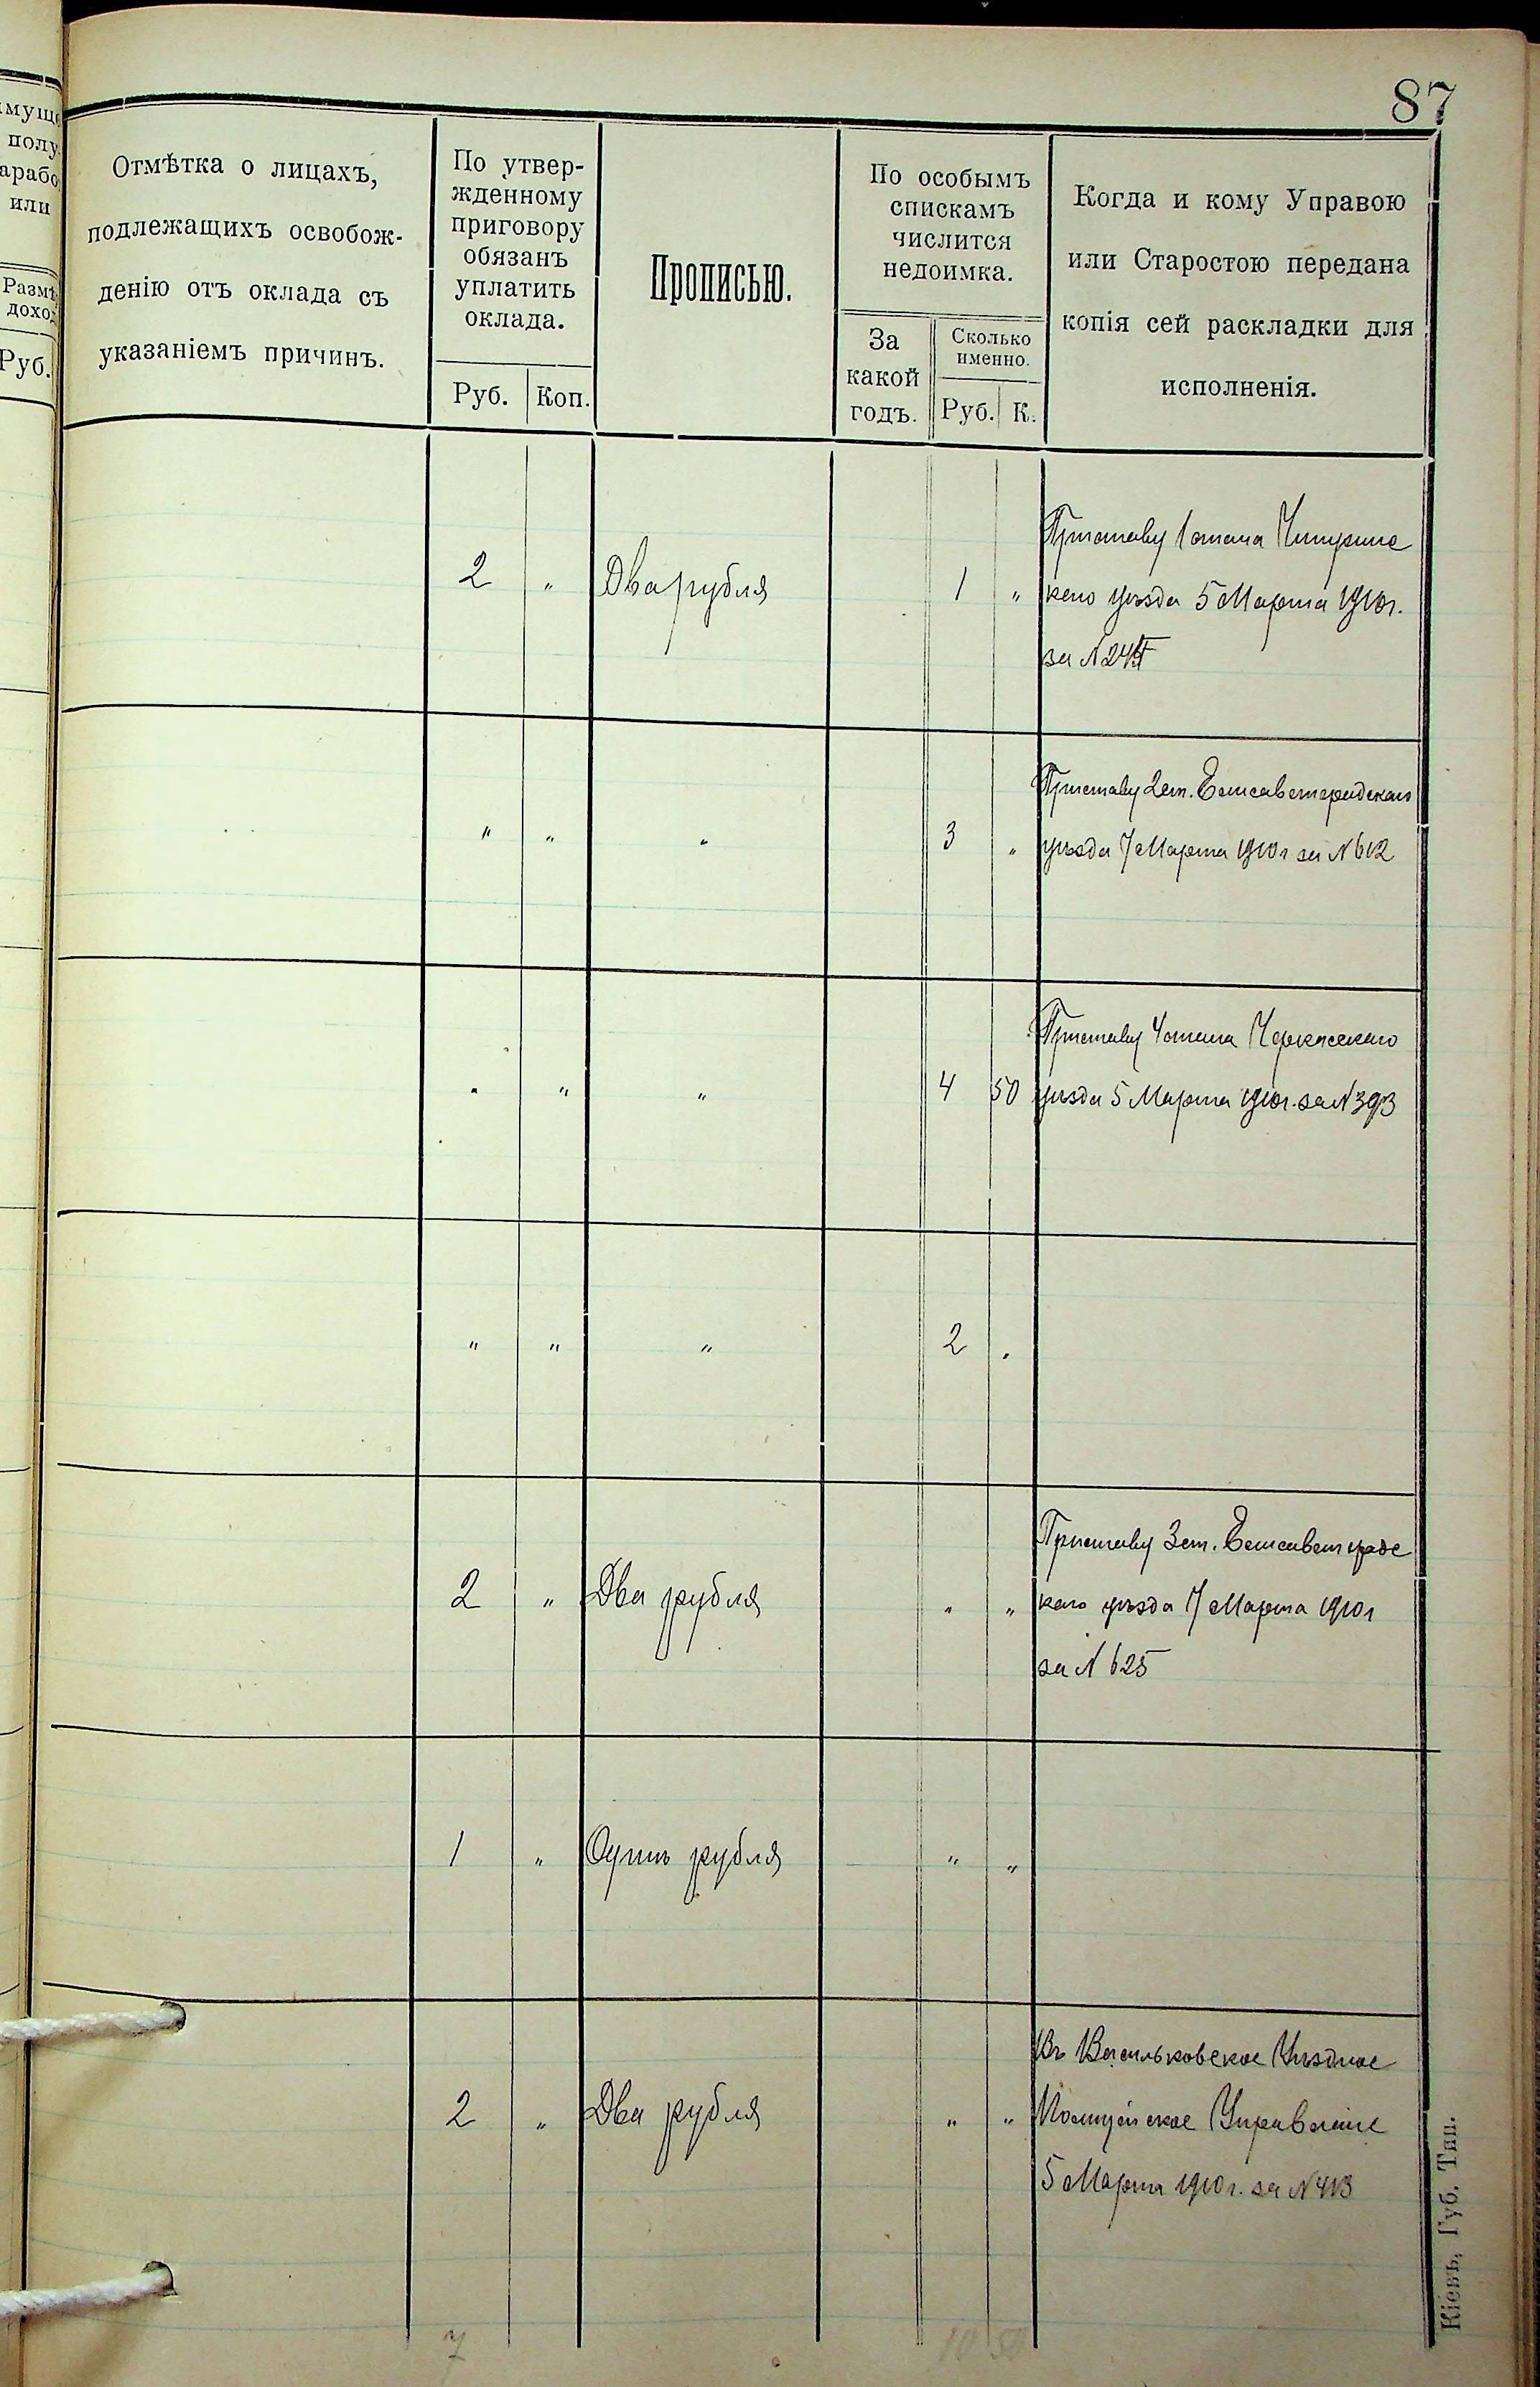 87
муще
полу
арабо
или
Размѣ
доход
Руб.
Отмѣтка о лицахъ,
подлежащихъ освобож-
денію отъ оклада съ
указаніемъ причинъ.
По утвер-
жденному
приговору
обязанъ
уплатить
оклада.
Руб. Коп.
Прописью.
По особымъ
спискамъ
числится
недоимка.
За
какой
годъ.
Сколько
именно.
Руб. К.
Когда и кому Управою
или Старостою передана
копія сей раскладки для
исполненія.
2 " Два рубля 1 "
Приставу 1 стана Чигирине
каго уѣзда 5 Марта 1910г.
за N
" " " 3 "
Приставу 2 ст. Елисаветградскаго
уѣзда 7 Марта 1910г за N 612
" " " 4 50
Приставу 4 стана Черкасскаго
уѣзда 5 Марта 1910г. за N 393
" " " 2 "
2 " Два рубля " "
Приставу 3 ст. Елисаветградс
каго уѣзда 7 Марта 1910г
за N 625
1 " Одинъ рубля " "
2 " Два рубля " "
Въ Васильковское Уѣздное
Полицейское Управленіе
5 Марта 1910г. за N 413
7 10 50
Кіевъ, Губ. Тип.